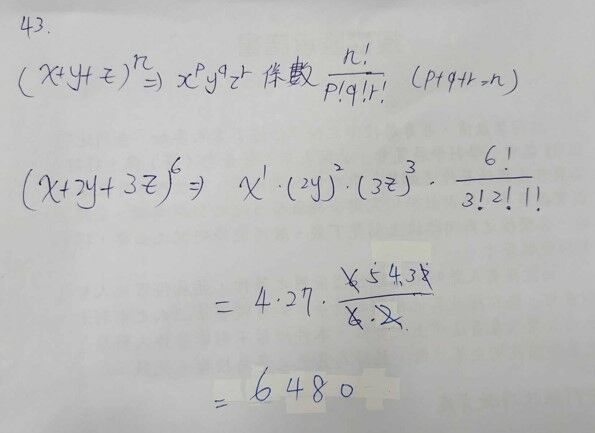 43.
(x+y+z)^n ⇒ x^p y^q z^r 係數 n!/p!q!r! (p+q+r=n)
(x+2y+3z)^6 ⇒ x^1·(2y)^2·(3z)^3·6!/3!2!1!
=4·27·6 5 4 3 2/6·2
=6480